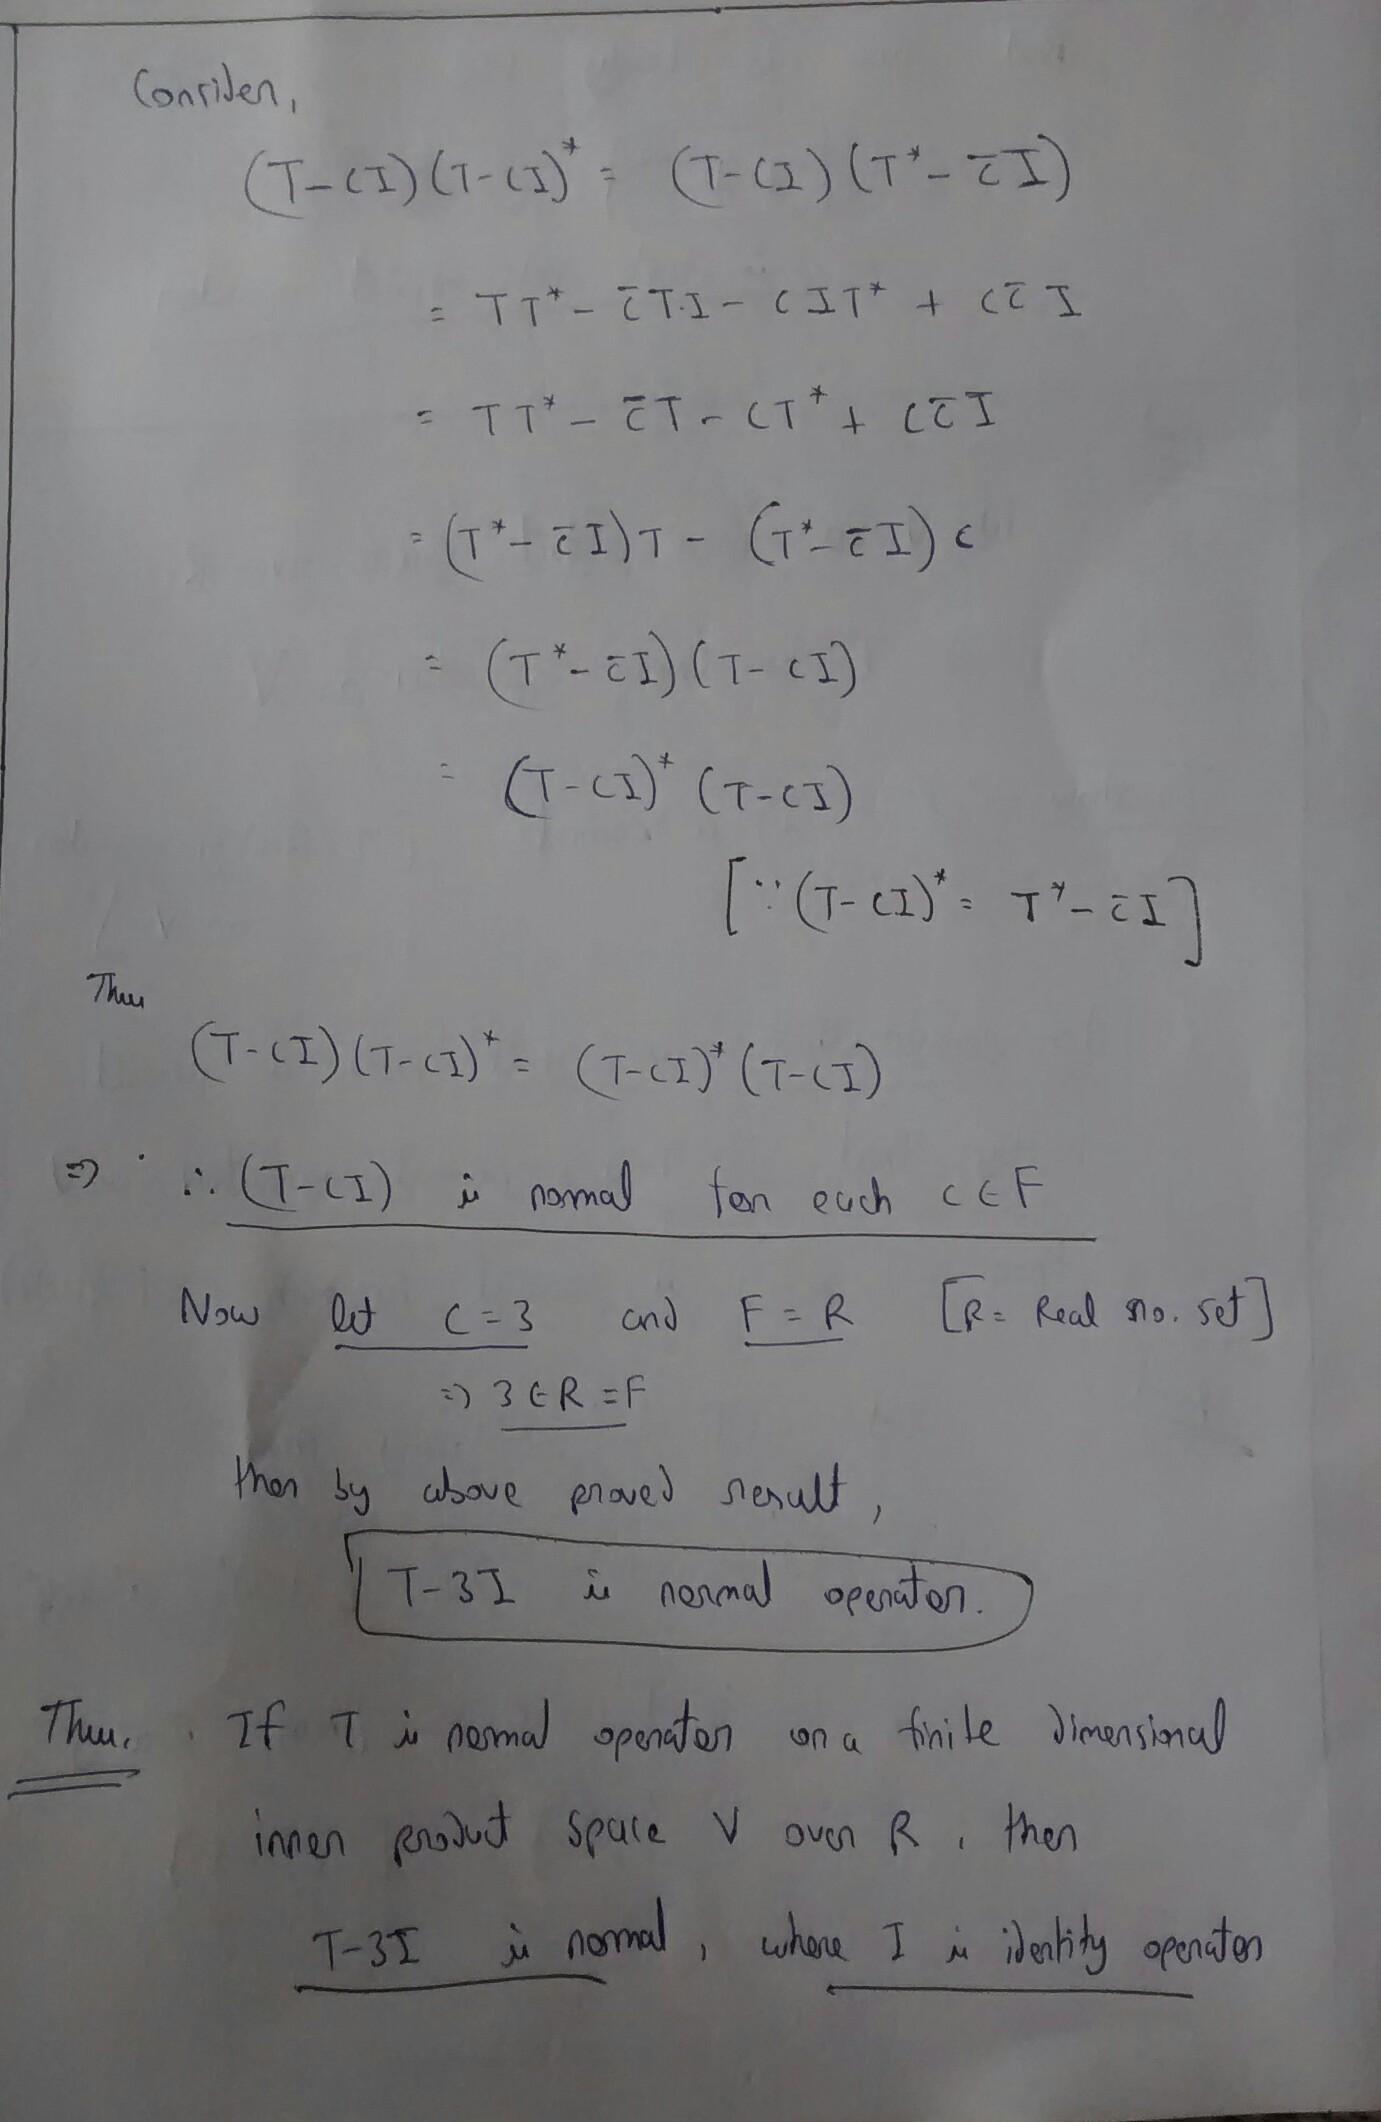 Consider,
(T-cI)(T-cI)* = (T-cI)(T*-c̄I)
= TT* - c̄T.I - cIT* + cc̄I
= TT* - c̄T - cT* + cc̄I
= (T*-c̄I)T - (T*-c̄I)c
= (T*-c̄I)(T-cI)
= (T-cI)*(T-cI)
[∵ (T-cI)* = T*-c̄I]
Thus
(T-cI)(T-cI)* = (T-cI)*(T-cI)
⇒ ∴ (T-cI) is normal for each c∈F
Now let c=3 and F=R [R= Real no. set]
⇒ 3∈R=F
then by above proved result,
T-3I is normal operator.
Thus, If T is normal operator on a finite dimensional
inner product space V over R, then
T-3I is normal, where I is identity operator